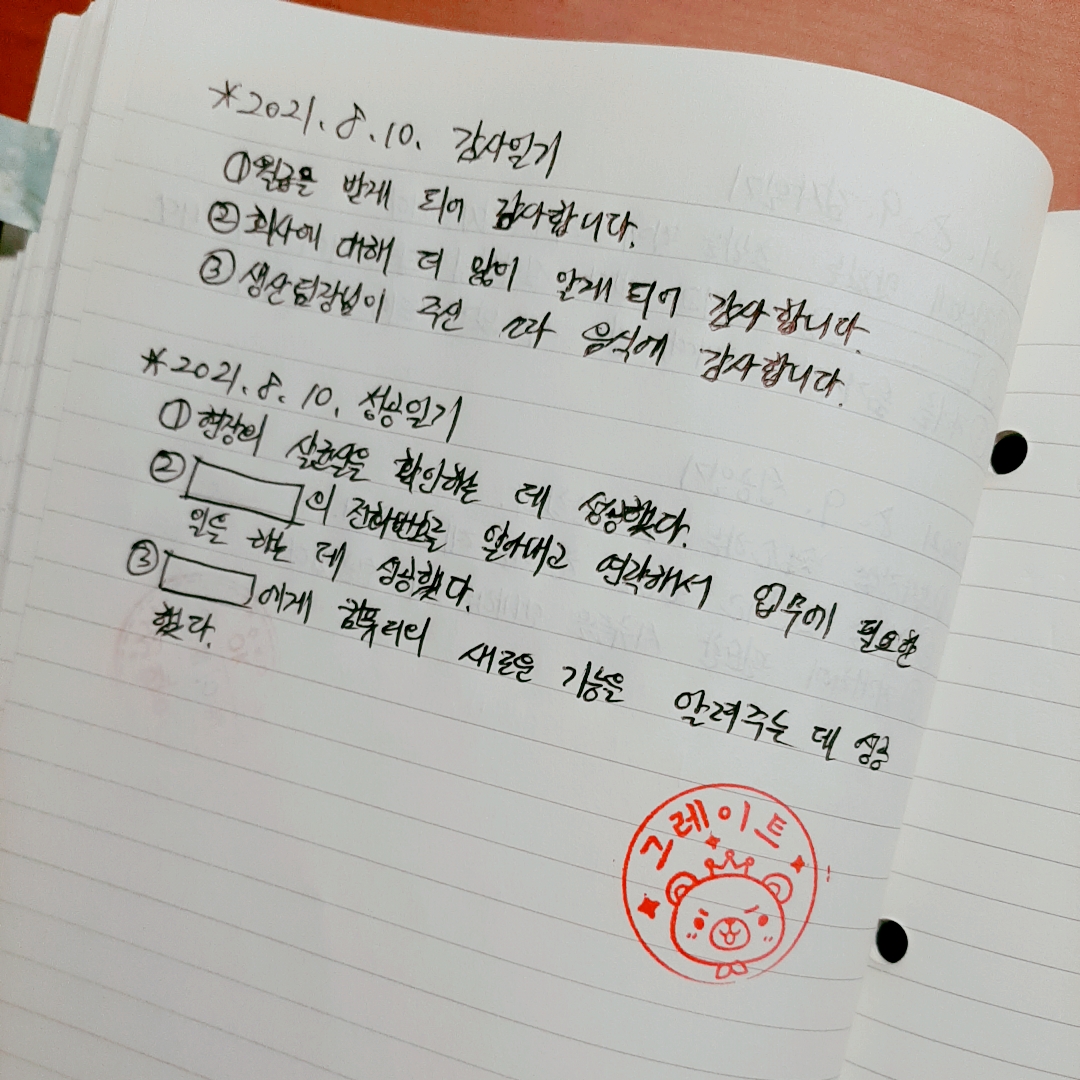 *2021. 8. 10. 감사일기
①월급을 받게 되어 감사합니다.
②회사에 대해 더 많이 알게 되어 감사합니다.
③생산팀장님이 주신 소라 음식에 감사합니다.
*2021. 8. 10. 성공일기
①현장의 살균실을 확인하는 데 성공했다.
② 의 전화번호를 알아내고 연락해서 업무에 필요한
일을 하는 데 성공했다.
③ 에게 컴퓨터의 새로운 기능을 알려주는 데 성공
했다.
그레이트